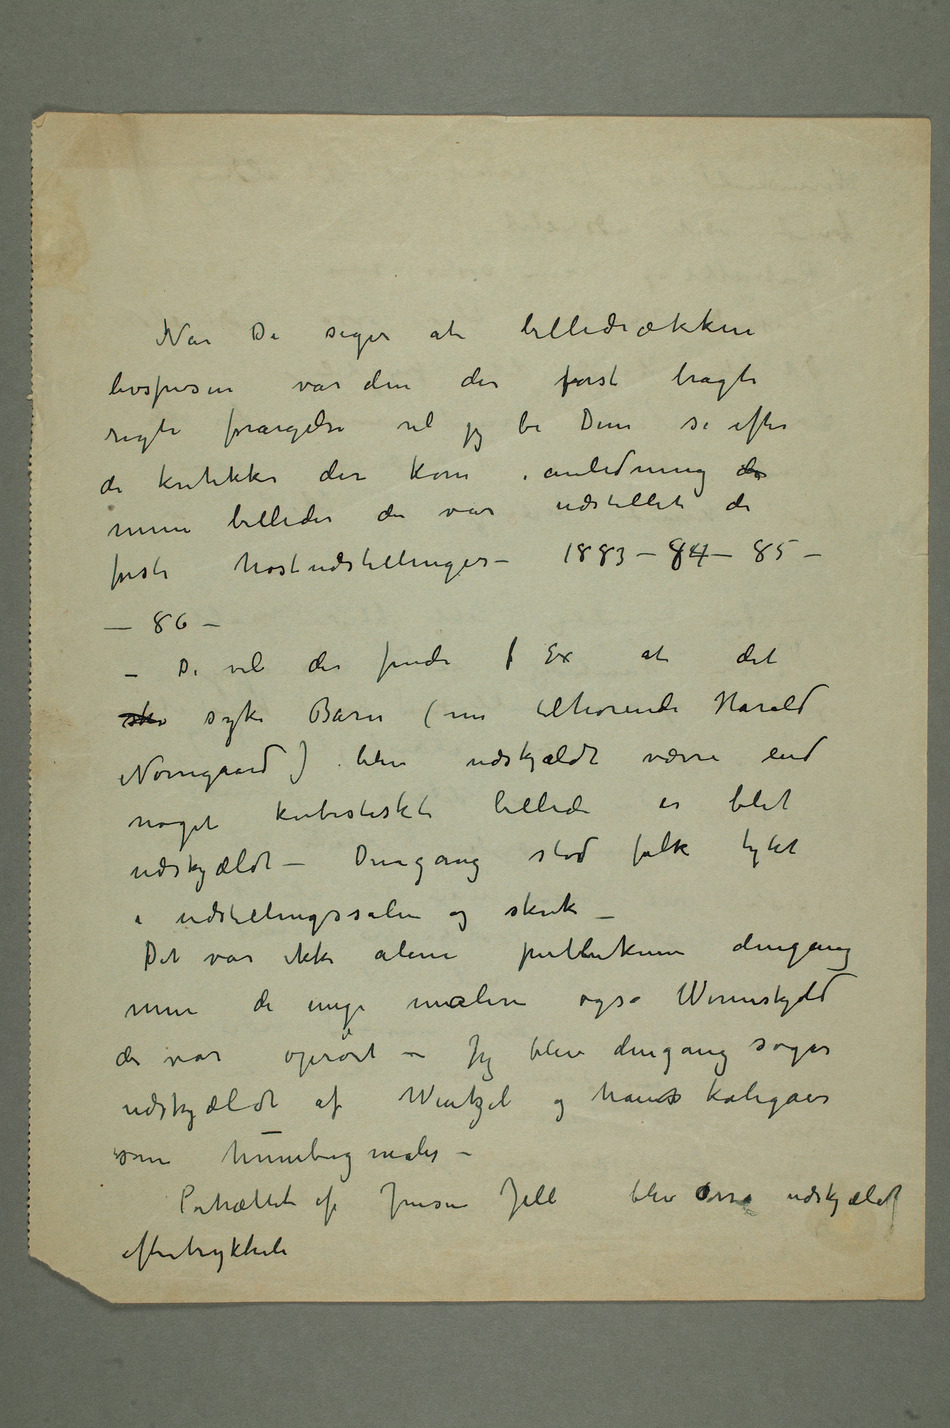 Når De siger at billedrækken
livsfrisen var den der først bragte
rigti forargelse vil jeg be Dem se efter
de kritikker der kom i anledning de
mine billeder der var udstillet de
første høstudstillinger – 1883 – 84 – 85 –
– 86 –
– De vil der finde f Ex at det
syke Barn (nu tilhørende Harald
Nørregaard) blev udskjældt værre end
noget kubistiskt billede er blet
udskjældt – Dengang stod folk tykt
i udstillingssalen og skrek –
Det var ikke alene publikum dengang
men de unge malere også Wernskjold
der var oprørt – Jeg blev dengang sogar
udskjældt af Wentzel og hans kolegaer
som humbugmaler –
Portrættet af Jensen Jell blev osså udskjældt
eftertrykkeli